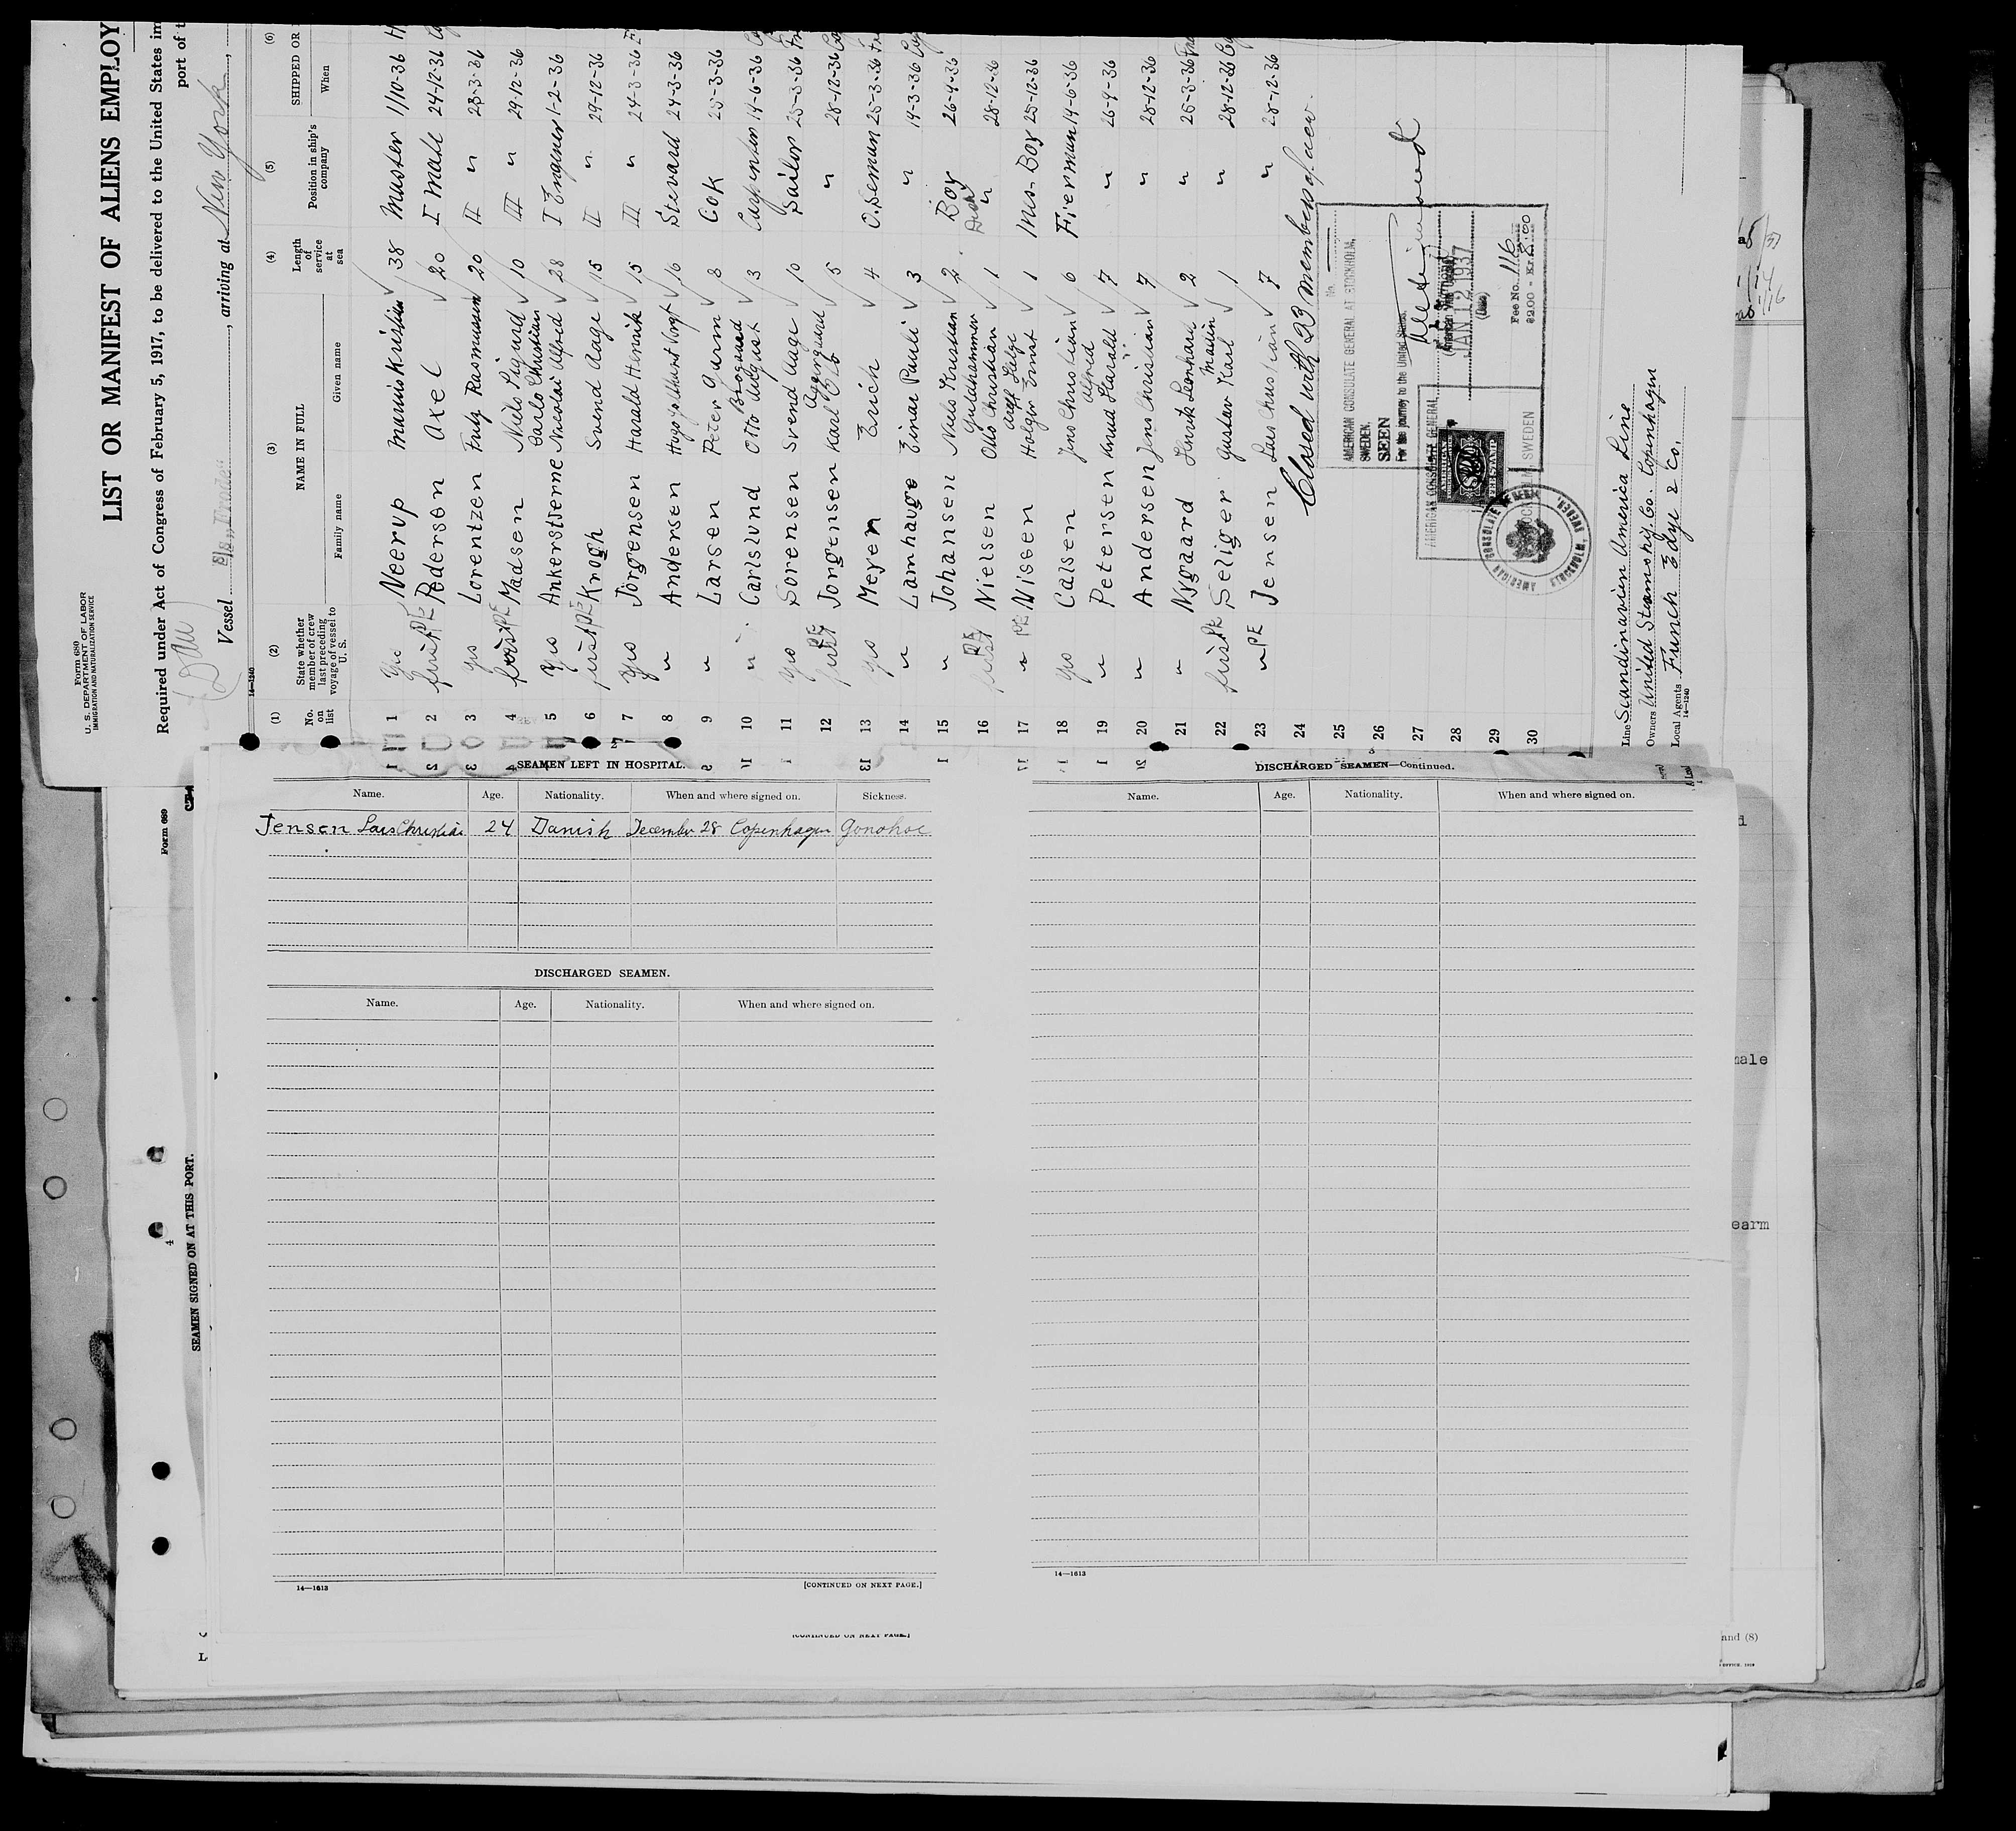 Form 680
U. S. DEPARTMENT OF LABOR
IMMIGRATION AND NATURALIZATION SERVICE
LIST OR MANIFEST OF ALIENS EMPLOY
Required under Act of Congress of February 5, 1917, to be delivered to the United States im
port of t
Vessel , arriving at New York ,
14—1240
(1) (2) (3) (4) (5) (6)
No. on list
State whether member of crew last preceding voyage of vessel to U. S.
NAME IN FULL
Family name Given name
Length of service at sea
Position in ship's company
SHIPPED OR
When
1 Yes Neerup Marius Kristian 38 Master 1/10-36
2 first PE Pedersen Axel 20 I Mate 24-12-36
3 yes Lorentzen Rasmussen 20 II " 28-3-36
4 first PE Madsen Niels 10 III " 29-12-36
5 Yes Ankerstjerne Carlo Christian Nicolai Alfred 28 I Engineer 1-2-36
6 first PE Krogh Svend Aage 15 II " 29-12-36
7 Yes Jörgensen Harald Henrik 15 III " 24-3-36
8 " Andersen 16 Stevard 24-3-36
9 " Larsen Peter 8 Cok 25-3-36
10 " Carlslund Otto August 3 Carpenter 14-6-36
11 yes Sorensen Svend Aage 10 Sailor 25-3-36
12 first PE Jorgensen Karl 5 " 28-12-36
13 yes Meyer Erich 4 O. Seman 25-3-36
14 " Lamhauge Einar Pauli 3 " 14-3-36
15 " Johansen Niels Kristian 2 Boy 26-9-36
16 first PE Nielsen Otto Christian 1 " 28-12-36
17 " PE Nissen Holger Ernst 1 Mes-Boy 25-12-36
18 yes Calsen Jens Christian 6 Fierman 14-6-36
19 " Petersen Alfred Knud Harald 7 " 26-9-36
20 " Andersen Jens Christian 7 " 28-12-36
21 " Nygaard Henrik Leonhard 2 " 25-3-36
22 first PE Seliger Gustav Karl 1 " 28-12-36
23 " PE Jensen Lars Christian 7 " 28-12-36
24
25
26
27
28
29
30
Closed with 23 members of crew.
No.
AMERICAN CONSULATE GENERAL AT STOCKHOLM,
SWEDEN.
SEEN
For the journey to the United States.
JAN 12 1937
(Date)
Fee No. 116
$2.00 = Kr. 8.00
AMERICAN CONSULATE GENERAL
SWEDEN
FEE STAMP
AMERICAN CONSULATE GENERAL
STOCKHOLM, SWEDEN.
Line Scandinavien America Line
Owners United Steamship Co. Copenhagen
Local Agents Funch Edye & Co.
14—1240
SEAMEN LEFT IN HOSPITAL.
Name. Age. Nationality. When and where signed on. Sickness.
Jensen Lars Christian 24 Danish December 28 Copenhagen Gonohoe
DISCHARGED SEAMEN.
Name. Age. Nationality. When and where signed on.
14—1613 [CONTINUED ON NEXT PAGE.]
DISCHARGED SEAMEN—Continued.
Name. Age. Nationality. When and where signed on.
14—1613
[CONTINUED ON NEXT PAGE.]
Form 689
4
SEAMEN SIGNED ON AT THIS PORT.
earm
and (8)